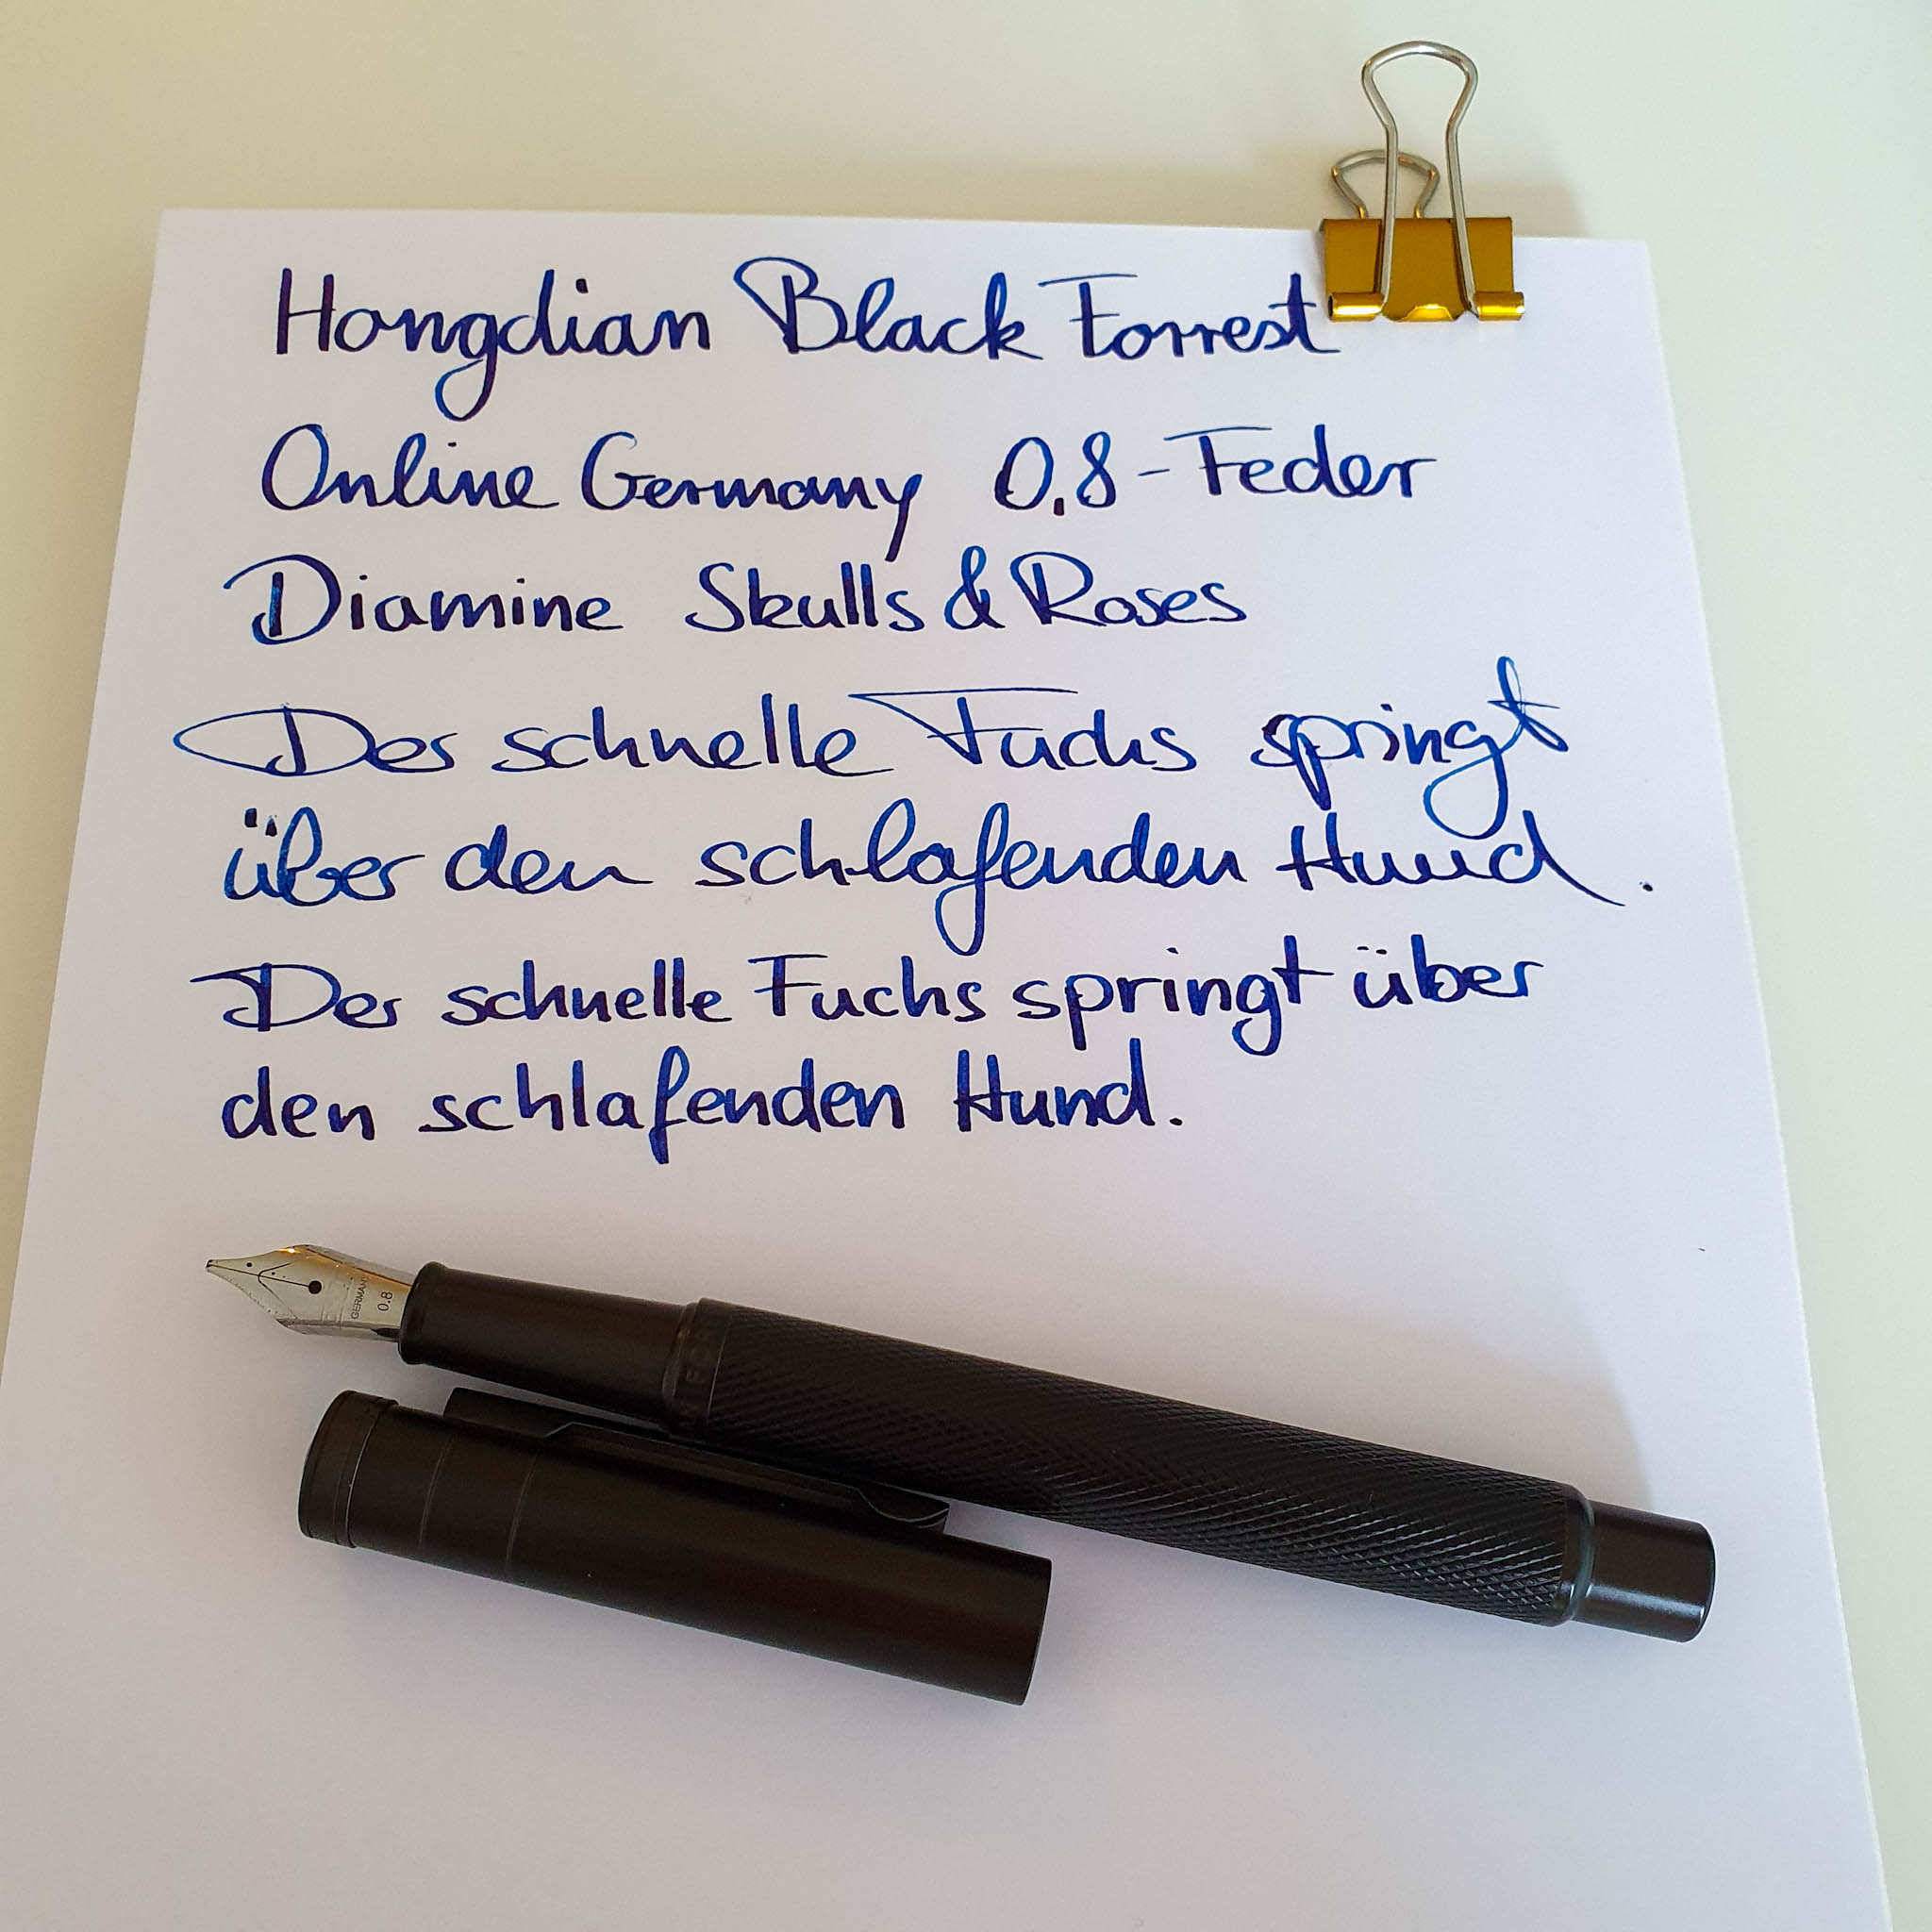 Hongdian Black Forrest
Online Germany 0.8-Feder
Diamine Skulls & Roses
Der schnelle Fuchs springt
über den schlafenden Hund.
Der schnelle Fuchs springt über
den schlafenden Hund.
GERMANY
0.8